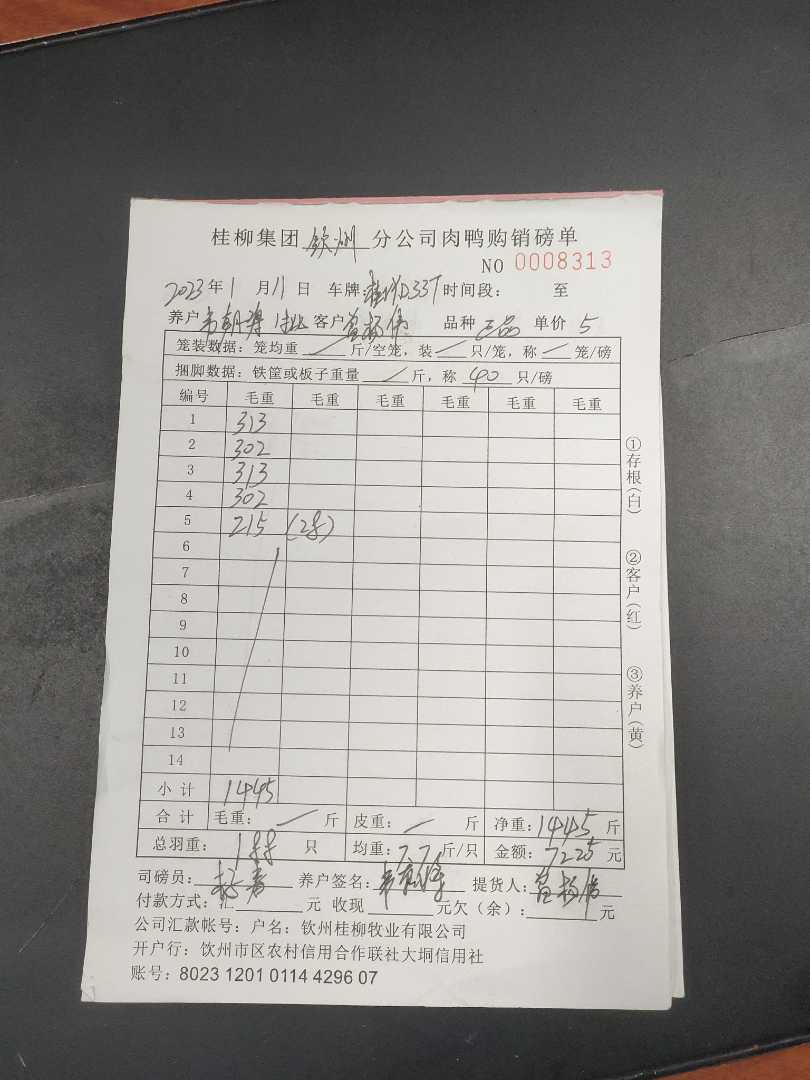 桂柳集团 钦州 分公司肉鸭购销磅单
NO 0008313
2023年1月11日 车牌: 时间段: 至
养户 客户 品种 三品 单价 5
笼装数据:笼均重 斤/空笼,装 只/笼,称 笼/磅
捆脚数据:铁筐或板子重量 斤,称 40 只/磅
编号 毛重 毛重 毛重 毛重 毛重 毛重
1 313
2 302
3 313
4 302
5 215
6
7
8
9
10
11
12
13
14
小计 1445
合计 毛重: 斤 皮重: 斤 净重:1445斤
总羽重: 188 只 均重:7.7斤/只 金额:7225元
司磅员: 养户签名: 提货人:
付款方式:汇 元 收现 元欠(余): 元
公司汇款帐号:户名:钦州桂柳牧业有限公司
开户行:钦州市区农村信用合作联社大垌信用社
账号:8023 1201 0114 4296 07
①存根(白)
②客户(红)
③养户(黄)